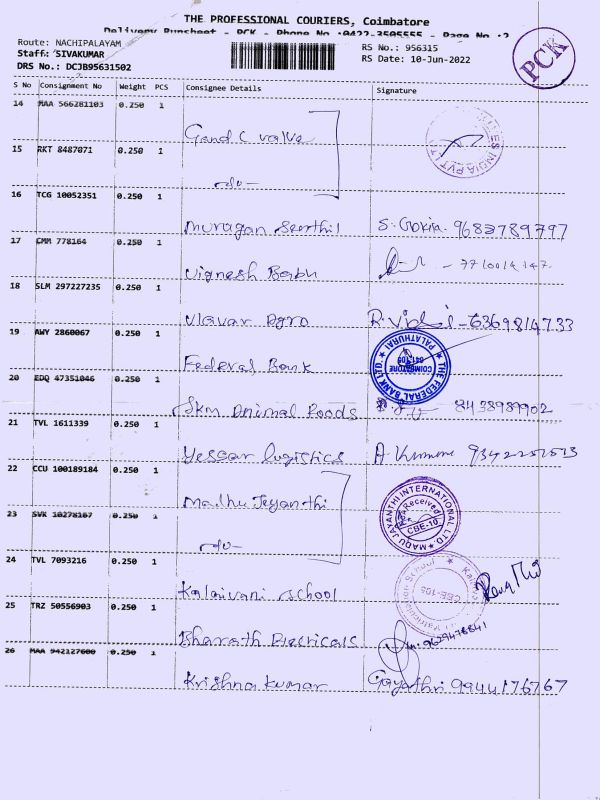 THE PROFESSIONAL COURIERS, Coimbatore
Delivery Runsheet - PCK - Phone No :0422-3505555 - Page No :2
Route: NACHIPALAYAM
Staff: SIVAKUMAR
DRS No.: DCJB95631502
RS No.: 956315
RS Date: 10-Jun-2022
PCK
S No Consignment No Weight PCS Consignee Details Signature
14 MAA 566281103 0.250 1
Gand C valve
15 RKT 8487071 0.250 1
-do-
16 TCG 10052351 0.250 1
Murugan Senthil S. Gokia. 9683789797
17 CMM 778164 0.250 1
Vignesh Babu
18 SLM 297227235 0.250 1
Ulavar Agro 6369814733
19 AWY 2860067 0.250 1
Federal Bank
THE FEDERAL BANK LTD PALATHURAI COIMBATORE 641-105
20 EDQ 47351046 0.250 1
SKM Animal Foods 8438989902
21 TVL 1611339 0.250 1
Yessar Logistics A Kumar
22 CCU 100189184 0.250 1
Madhu Jeyanthi
MADU JAYANTHI INTERNATIONAL LTD Received CBE-10
23 SVK 10278167 0.250 1
-do-
24 TVL 7093216 0.250 1
Kalaivani School
Matriculation School CBE-105
25 TRZ 50556903 0.250 1
Bharath Electricals 9629478841
26 MAA 942127600 0.250 1
Krishna kumar Gayathri 9944176767